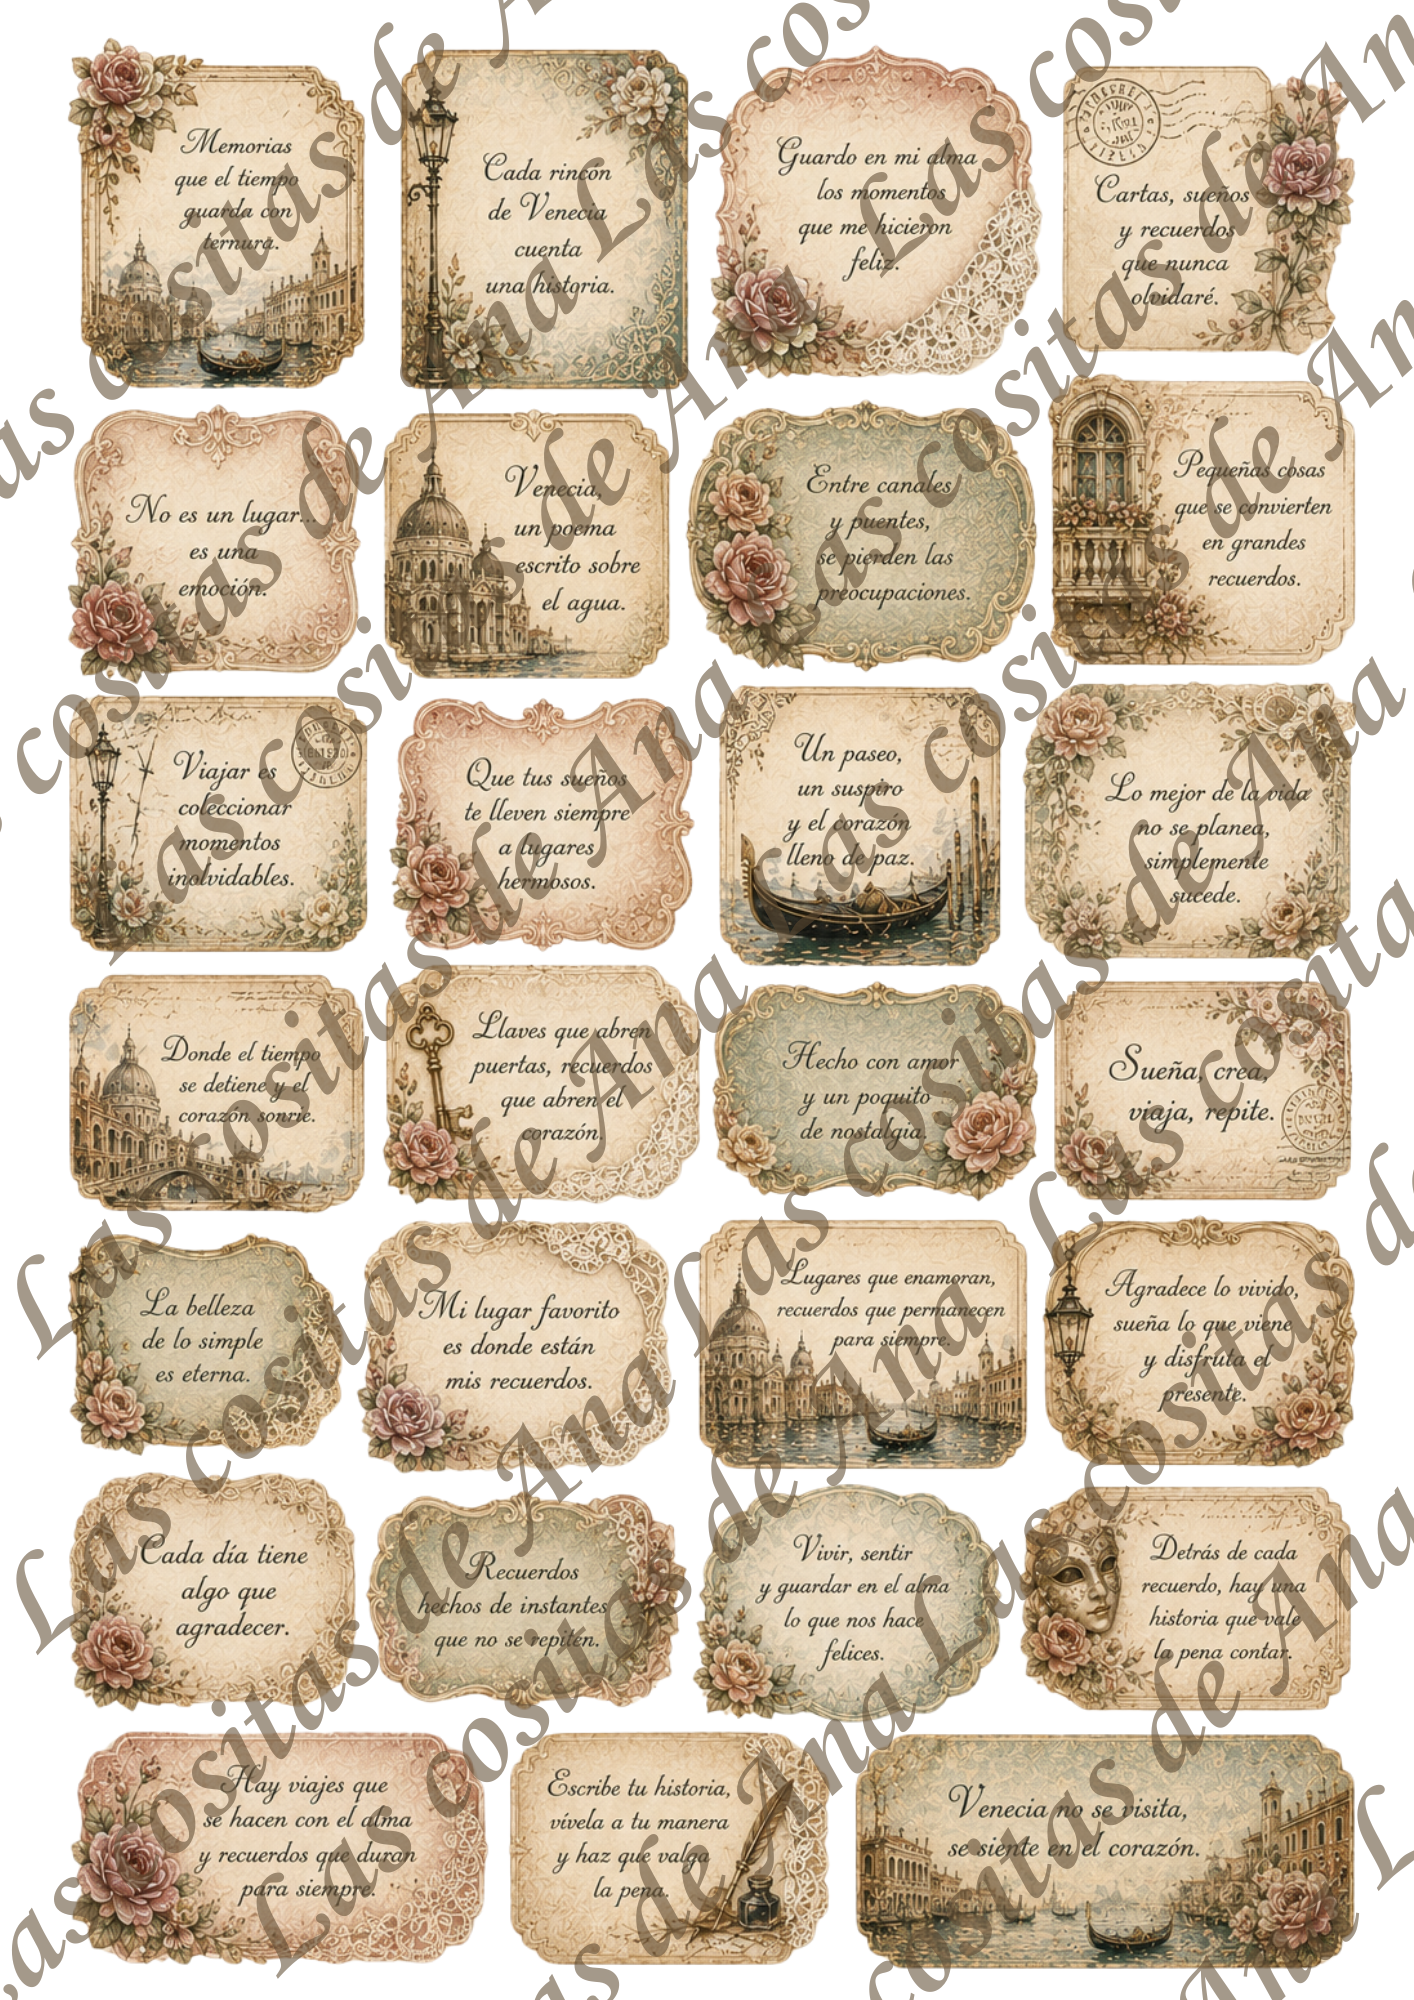 Memorias
que el tiempo
guarda con
ternura.
Cada rincón
de Venecia
cuenta
una historia.
Guardo en mi alma
los momentos
que me hicieron
feliz.
Cartas, sueños
y recuerdos
que nunca
olvidaré.
No es un lugar...
es una
emoción.
Venecia,
un poema
escrito sobre
el agua.
Entre canales
y puentes,
se pierden las
preocupaciones.
Pequeñas cosas
que se convierten
en grandes
recuerdos.
Viajar es
coleccionar
momentos
inolvidables.
Que tus sueños
te lleven siempre
a lugares
hermosos.
Un paseo,
un suspiro
y el corazón
lleno de paz.
Lo mejor de la vida
no se planea,
simplemente
sucede.
Donde el tiempo
se detiene y el
corazón sonríe.
Llaves que abren
puertas, recuerdos
que abren el
corazón.
Hecho con amor
y un poquito
de nostalgia.
Sueña, crea,
viaja, repite.
La belleza
de lo simple
es eterna.
Mi lugar favorito
es donde están
mis recuerdos.
Lugares que enamoran,
recuerdos que permanecen
para siempre.
Agradece lo vivido,
sueña lo que viene
y disfruta el
presente.
Cada día tiene
algo que
agradecer.
Recuerdos
hechos de instantes
que no se repiten.
Vivir, sentir
y guardar en el alma
lo que nos hace
felices.
Detrás de cada
recuerdo, hay una
historia que vale
la pena contar.
Hay viajes que
se hacen con el alma
y recuerdos que duran
para siempre.
Escribe tu historia,
vívela a tu manera
y haz que valga
la pena.
Venecia no se visita,
se siente en el corazón.
Las cositas de Ana Las cositas de Ana